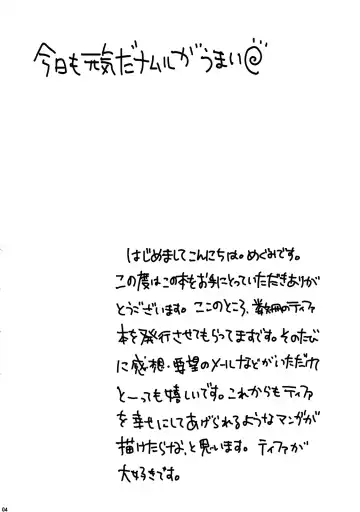 今日も元気だナムルがうまい@
はじめましてこんにちは。めぐみです。
この度はこの本をお手にとっていただきありが
とうございます。ここのところ、数冊のティファ
本を発行させてもらってますです。そのたび
に感想・要望のメールなどがいただけて
とーっても嬉しいです。これからもティファ
を幸せにしてあげられるようなマンガが
描けたらな、と思います。ティファが
大好きです。
04